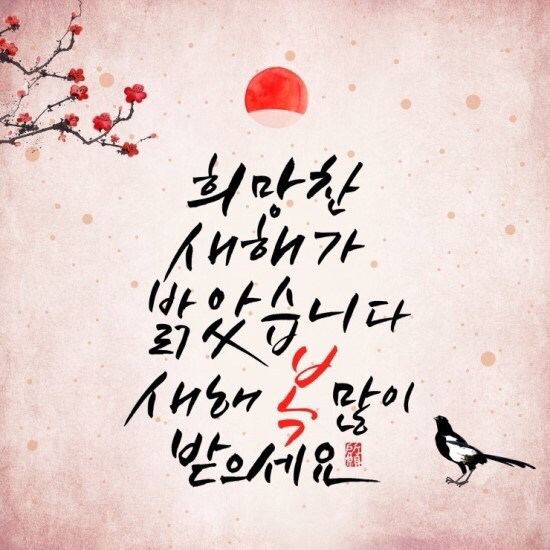 희망찬
새해가
밝았습니다
새해 복 많이
받으세요